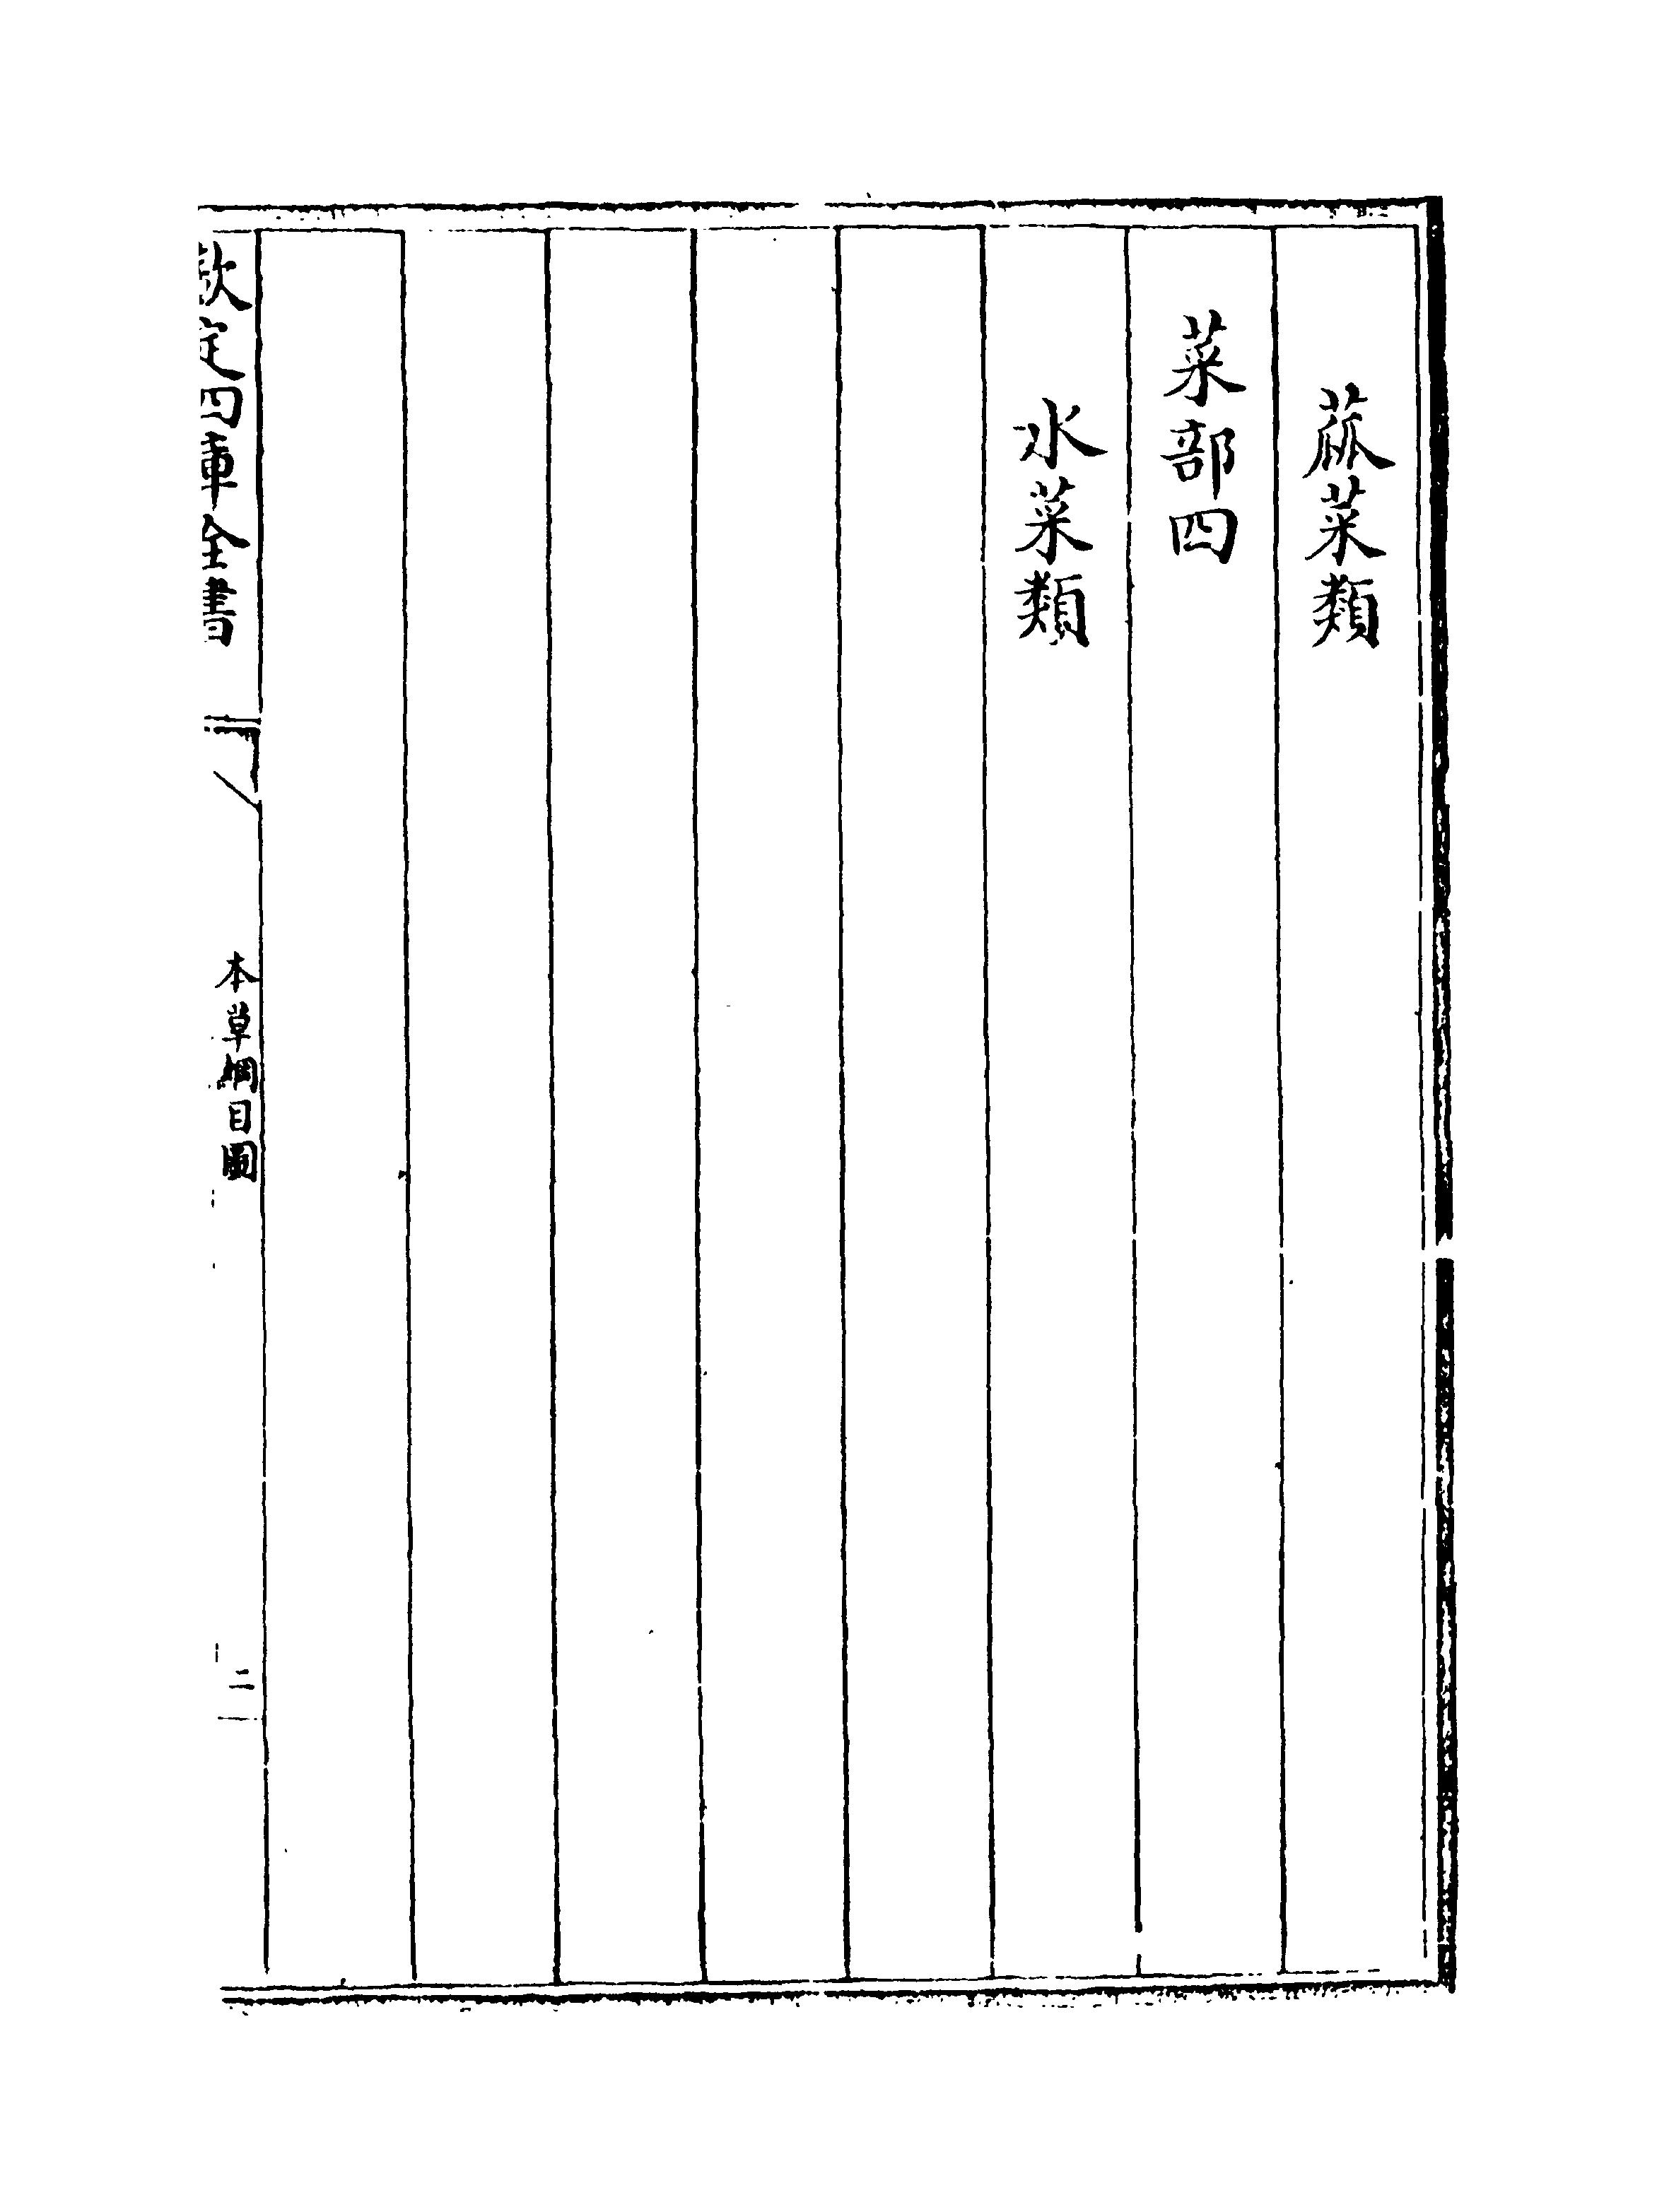 蓏菜類
菜部四
水菜類
欽定四庫全書
本草綱目圖
二